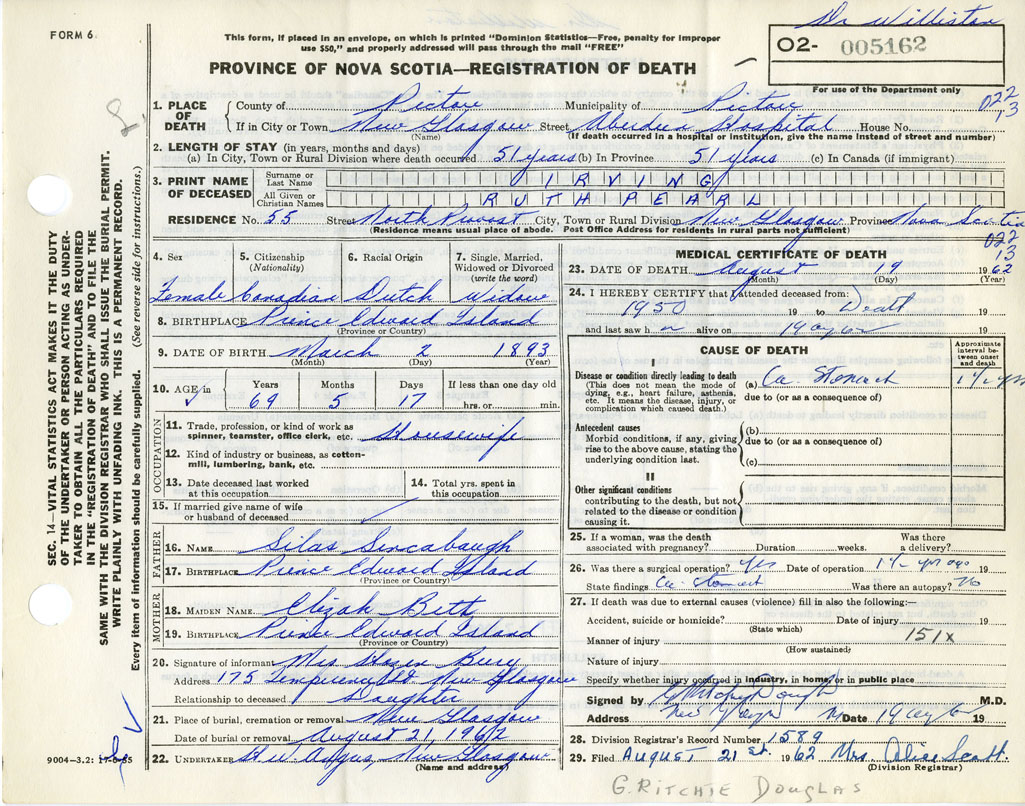 Dr Williston
FORM 6.
This form, if placed in an envelope, on which is printed "Dominion Statistics—Free, penalty for improper
use $50," and properly addressed will pass through the mail "FREE"
02- 005162
PROVINCE OF NOVA SCOTIA—REGISTRATION OF DEATH
For use of the Department only
022
13
1. PLACE OF DEATH
County of Pictou Municipality of Pictou
If in City or Town New Glasgow Street Hospital House No.
(Name) (If death occurred in a hospital or institution, give the name instead of street and number)
2. LENGTH OF STAY (in years, months and days)
(a) In City, Town or Rural Division where death occurred 51 years (b) In Province 51 years (c) In Canada (if immigrant)
3. PRINT NAME OF DECEASED
Surname or Last Name IRVING
All Given or Christian Names RUTH PEARL
RESIDENCE No. 55 Street North Provost City, Town or Rural Division New Glasgow Province Nova Scotia
(Residence means usual place of abode. Post Office Address for residents in rural parts not sufficient)
022
13
4. Sex 5. Citizenship (Nationality) 6. Racial Origin 7. Single, Married, Widowed or Divorced (write the word)
Female Canadian Dutch Widow
8. BIRTHPLACE Prince Edward Island
(Province or Country)
9. DATE OF BIRTH March 2 1893
(Month) (Day) (Year)
10. AGE in Years Months Days If less than one day old
69 5 17 hrs. or min.
OCCUPATION
11. Trade, profession, or kind of work as spinner, teamster, office clerk, etc. Housewife
12. Kind of industry or business, as cotton-mill, lumbering, bank, etc.
13. Date deceased last worked at this occupation
14. Total yrs. spent in this occupation
15. If married give name of wife or husband of deceased
FATHER
16. NAME Silas Sincabaugh
17. BIRTHPLACE Prince Edward Island
(Province or Country)
MOTHER
18. MAIDEN NAME Elizah Beth
19. BIRTHPLACE Prince Edward Island
(Province or Country)
20. Signature of informant Mrs
Address 175 New Glasgow
Relationship to deceased Daughter
21. Place of burial, cremation or removal New Glasgow
Date of burial or removal August 21, 1962
22. UNDERTAKER Angus, New Glasgow
(Name and address)
MEDICAL CERTIFICATE OF DEATH
23. DATE OF DEATH August 19 1962
(Month) (Day) (Year)
24. I HEREBY CERTIFY that I attended deceased from:
1950 19 to Death 19
and last saw h er alive on 19 19
CAUSE OF DEATH
Approximate interval between onset and death
I
Disease or condition directly leading to death
(This does not mean the mode of dying, e.g., heart failure, asthenia, etc. It means the disease, injury, or complication which caused death.)
(a) Ca. Stomach
due to (or as a consequence of)
Antecedent causes
Morbid conditions, if any, giving rise to the above cause, stating the underlying condition last.
(b)
due to (or as a consequence of)
(c)
II
Other significant conditions
contributing to the death, but not related to the disease or condition causing it.
25. If a woman, was the death associated with pregnancy? Duration weeks. Was there a delivery?
26. Was there a surgical operation? yes Date of operation yr ago 19
State findings Ca. stomach Was there an autopsy? No
27. If death was due to external causes (violence) fill in also the following:—
Accident, suicide or homicide? Date of injury 19
(State which)
Manner of injury 151x
(How sustained)
Nature of injury
Specify whether injury occurred in industry, in home, or in public place
Signed by M.D.
Address New Date 19
28. Division Registrar's Record Number 1589
29. Filed AUGUST 21st. 1962 Mrs. Alice Scott.
(Division Registrar)
G. RITCHIE DOUGLAS
SEC. 14—VITAL STATISTICS ACT MAKES IT THE DUTY
OF THE UNDERTAKER OR PERSON ACTING AS UNDER-
TAKER TO OBTAIN ALL THE PARTICULARS REQUIRED
IN THE "REGISTRATION OF DEATH" AND TO FILE THE
SAME WITH THE DIVISION REGISTRAR WHO SHALL ISSUE THE BURIAL PERMIT.
WRITE PLAINLY WITH UNFADING INK. THIS IS A PERMANENT RECORD.
Every item of information should be carefully supplied. (See reverse side for instructions.)
9004—3.2: 17-6-55